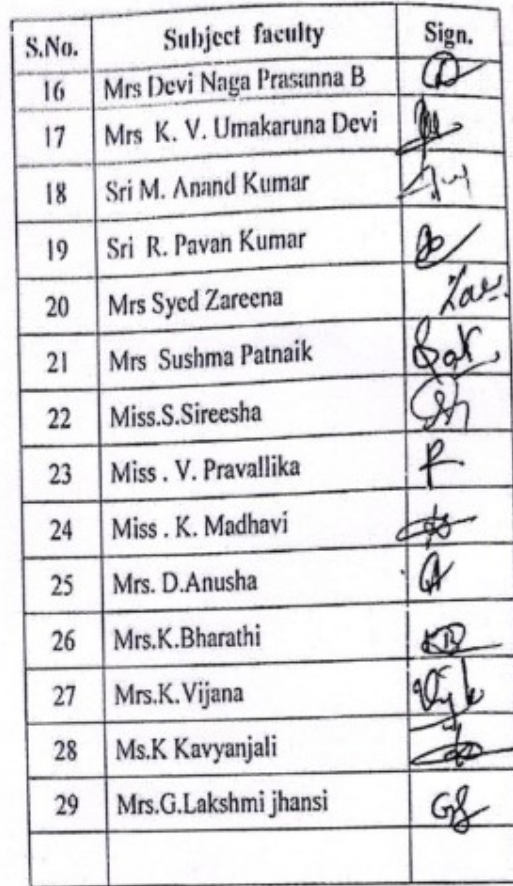 S.No. Subject faculty Sign.
16 Mrs Devi Naga Prasanna B
17 Mrs K. V. Umakaruna Devi
18 Sri M. Anand Kumar
19 Sri R. Pavan Kumar
20 Mrs Syed Zareena
21 Mrs Sushma Patnaik
22 Miss.S.Sireesha
23 Miss . V. Pravallika
24 Miss . K. Madhavi
25 Mrs. D.Anusha
26 Mrs.K.Bharathi KB
27 Mrs.K.Vijana
28 Ms.K Kavyanjali
29 Mrs.G.Lakshmi jhansi